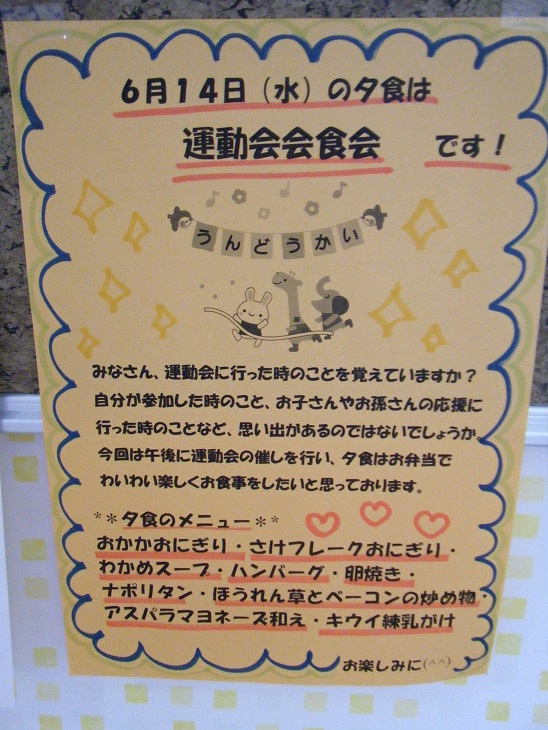 6月14日（水）の夕食は
運動会会食会　です！
うんどうかい
みなさん、運動会に行った時のことを覚えていますか？
自分が参加した時のこと、お子さんやお孫さんの応援に
行った時のことなど、思い出があるのではないでしょうか。
今回は午後に運動会の催しを行い、夕食はお弁当で
わいわい楽しくお食事をしたいと思っております。
＊＊夕食のメニュー＊＊
おかかおにぎり・さけフレークおにぎり・
わかめスープ・ハンバーグ・卵焼き・
ナポリタン・ほうれん草とベーコンの炒め物・
アスパラマヨネーズ和え・キウイ練乳がけ
お楽しみに(^^)